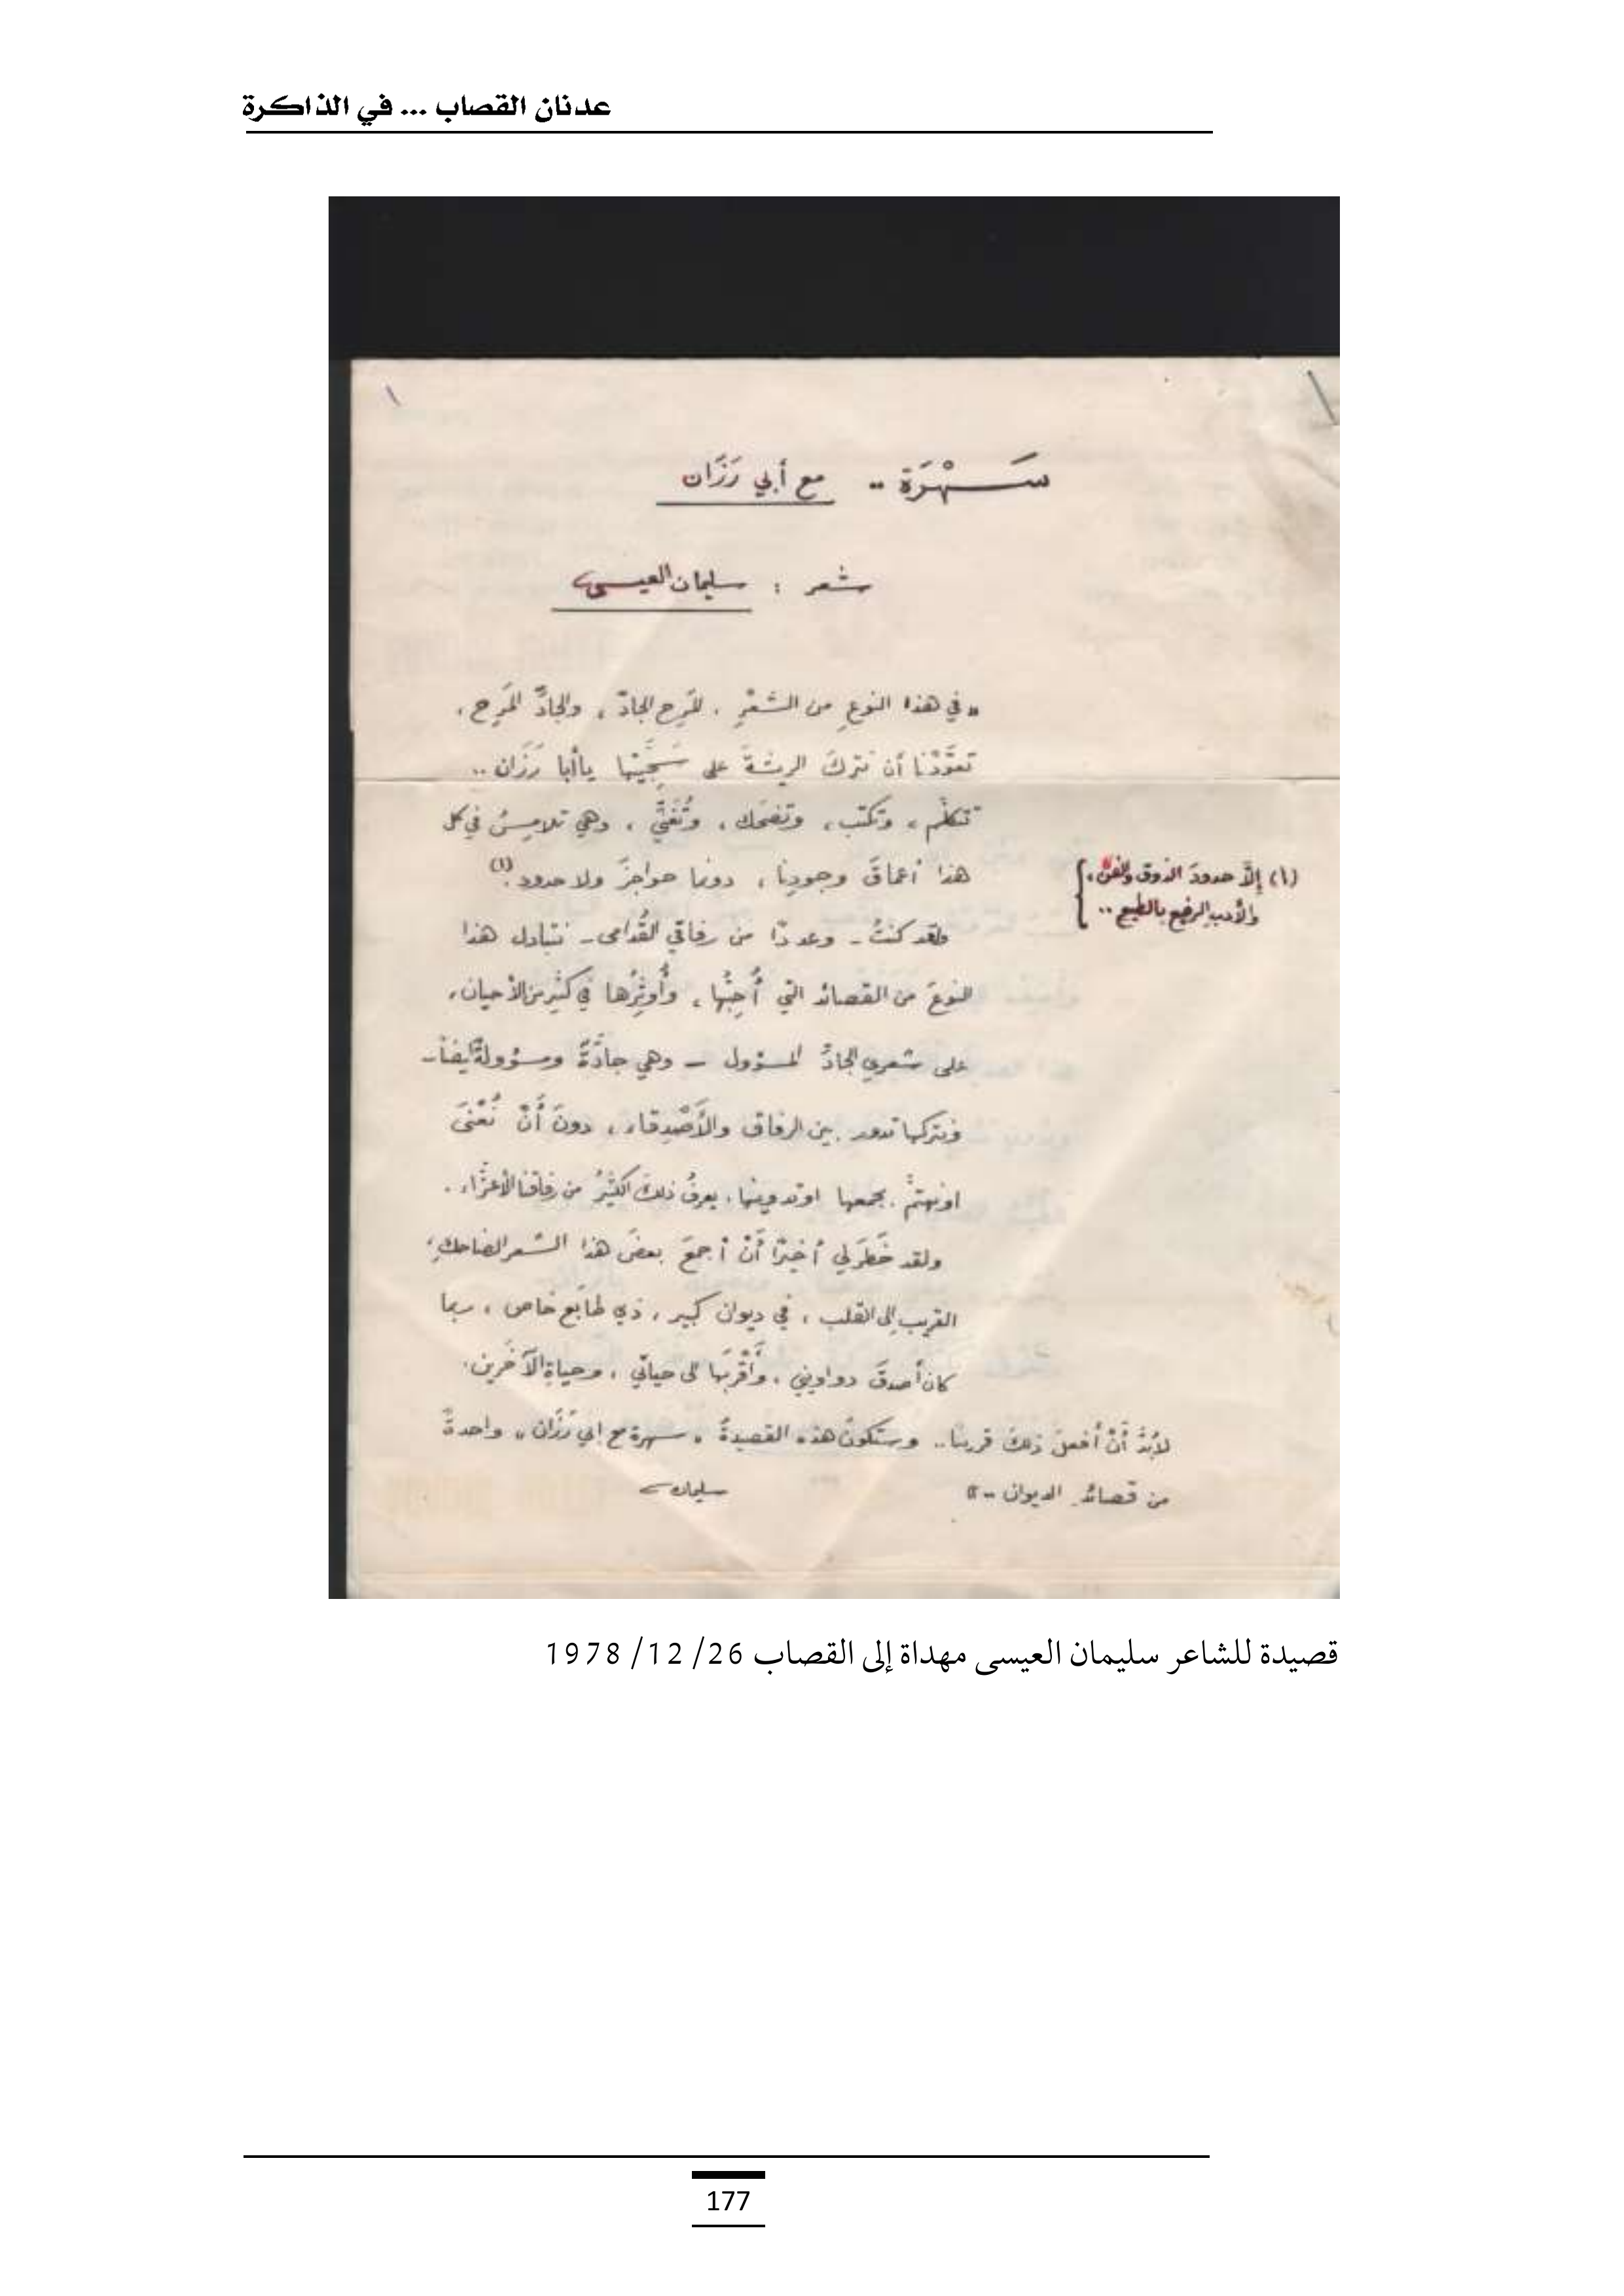 عدنان القصاب ... في الذاكرة
١
سَهْرَة .. مع أبي رَزَان
شعر : سليمان العيسى
« في هذا النوعِ من الشعرِ ، المَرِحِ الجادّ ، والجادِّ المَرِح ،
تعوَّدْنا أن نتركَ الريشةَ على سَجِيَّتِها يا أبا رَزَان ..
تتكلّم ، وتكتب ، وتضحك ، وتُغَنّي ، وهي تلامِسُ في كل
هذا أعماقَ وجودِنا ، دونما حواجزَ ولا حدود .(١)
(١) إلاّ حدودَ الذوق والفنّ ،
والأدب الرفيع بالطبع ..
ولقد كنتُ - وعددًا من رفاقي القُدامى - نتبادل هذا
النوعَ من القصائد التي أُحِبُّها ، وأُوثِرُها في كثيرٍ من الأحيان ،
على شعري الجادِّ المسؤول - وهي جادَّةٌ ومسؤولةٌ أيضاً -
ونتركها تدور بين الرفاق والأَصْدِقاء ، دونَ أَنْ نُعْنَى
او نهتمَّ بجمعها او تدوينها . يعرفُ ذلك الكثيرُ من رفاقنا الأعزّاء .
ولقد خَطَرَ لي أخيرًا أَنْ أجمعَ بعضَ هذا الشعر الضاحكِ ،
القريب إلى القلب ، في ديوان كبير ، ذي طابَع خاص ، ربما
كان أصدقَ دواويني ، وأَقْرَبَها الى حياتي ، وحياةِ الآخَرين .
لابُدَّ أَنْ أفعلَ ذلك قريبًا .. وستكونُ هذه القصيدةُ « سهرة مع ابي رَزَان » واحدةً
من قصائد الديوان .. »
سليمان
قصيدة للشاعر سليمان العيسى مهداة إلى القصاب 26/ 12/ 1978
177